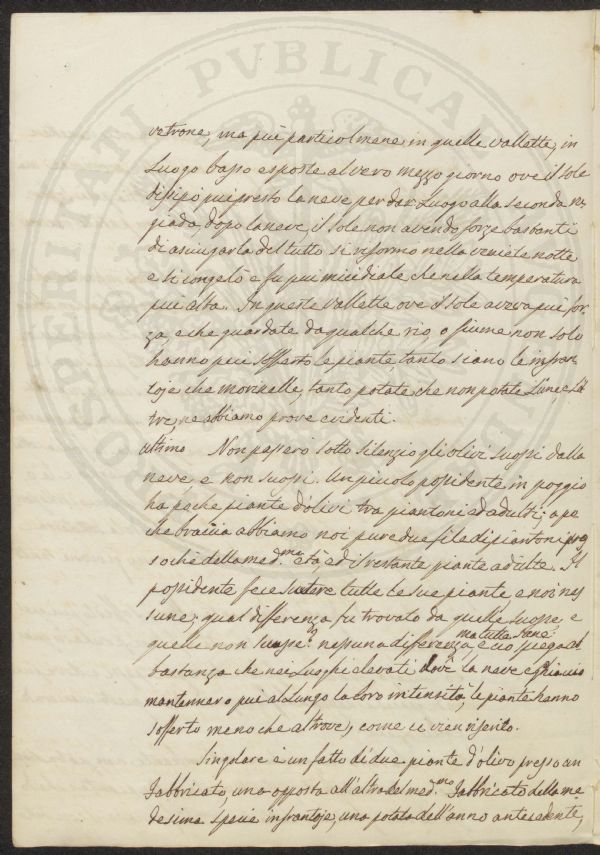 vatrone, ma più particolmene in quelle vallette, in
Luogo basso esposte al vero mezzo giorno ove il sole
dissipò più presto la neve per dar Luogo alla seconda ru,
giada, dopo la neve, il sole non avendo forze bastanti
di asciugarla del tutto si riformò nella veniete notte
e si congelò e fu più micidiale che nella temperatura
più alta. In queste vallette ove il sole aveva più for,
za, e che guardate da qualche rio, o fiume non solo
hanno più sofferto le piante tanto siano le infran,
toje che morinelle, tanto potate che non potate L'une e L'al
tre, ne abbiamo prove evidenti.
ultimo Non passerò sotto silenzio gli olivi scossi dalla
neve, e non scossi. Un piccolo possidente in poggio
ha poche piante d'olivi tra piantoni ed adulti; a po
che braccia abbiamo noi pure due fila di piantoni pres
soché della med.ma età, ed il restante piante adulte. Il
possidente fece scuotere tutte le sue piante, e noi nes
suna; qual differenza fu trovata da quelle scosse, e
quelle non scosse? nessuna differenza, ma tutte sane e ciò spiega ab
bastanza che nei Luoghi elevati dove la neve e ghiaccio
mantennero più al Lungo la loro intensità, le piante hanno
sofferto meno che altrove, come ci vien riferito.
Singolare è un fatto di due piante d'olivo presso un
Fabbricato, una opposta all'altra del med.mo Fabbricato della me
desima specie infrantoje, una potata dell'anno antecedente,
PROSPERITATI PVBLICAE